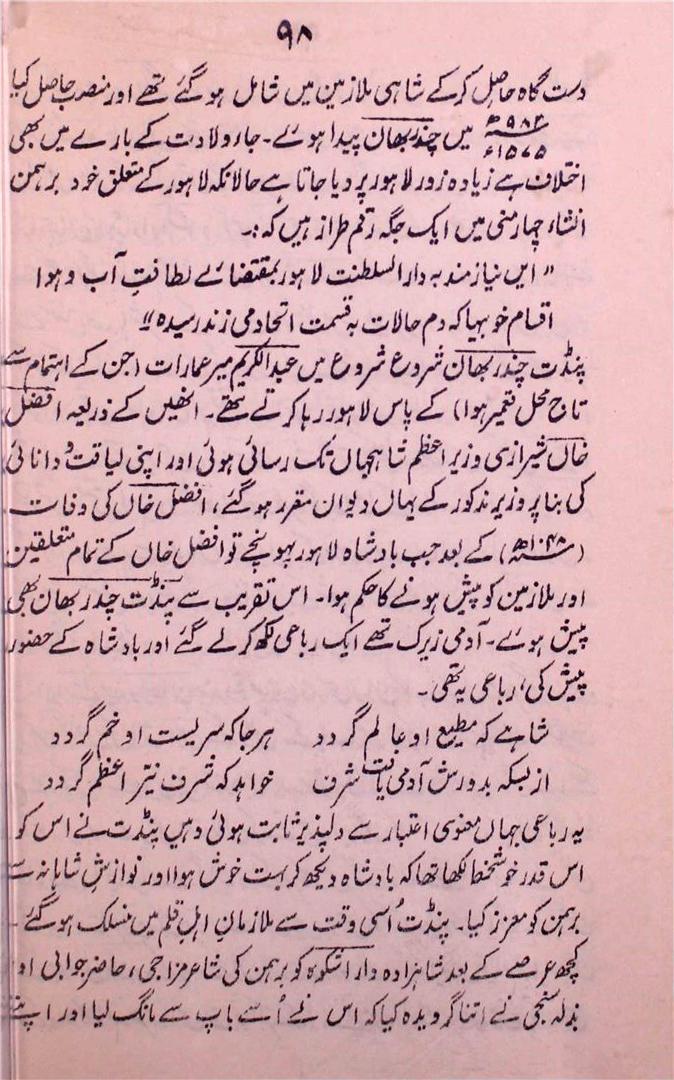 ۹۸
دست گاہ حاصل کر کے شاہی ملازمین میں شامل ہو گئے تھے اور منصب حاصل کیا
۹۸۲ھ
۱۵۷۵ء میں چندر بھان پیدا ہوئے۔ جاء ولادت کے بارے میں بھی
اختلاف ہے زیادہ زور لاہور پر دیا جاتا ہے حالانکہ لاہور کے متعلق خود برہمن
انشاء چہار منی میں ایک جگہ رقم طراز ہیں کہ:۔
" ایں نیاز مند بہ دار السلطنت لاہور بمقتضائے لطافتِ آب و ہوا
اقسام خوبیہا کہ دم حالات بہ قسمت اتحاد می زند رسیدہ "
پنڈت چندر بھان شروع شروع میں عبدالکریم میر عمارات (جن کے اہتمام سے
تاج محل تعمیر ہوا) کے پاس لاہور رہا کرتے تھے۔ انھیں کے ذریعہ افضل
خاں شیرازی وزیر اعظم شاہجہاں تک رسائی ہوئی اور اپنی لیاقت و دانائی
کی بنا پر وزیر مذکور کے یہاں دیوان مقرر ہو گئے، افضل خاں کی وفات
(۱۰۴۸ھ) کے بعد جب بادشاہ لاہور پہونچے تو افضل خاں کے تمام متعلقین
اور ملازمین کو پیش ہونے کا حکم ہوا۔ اس تقریب سے پنڈت چندر بھان بھی
پیش ہوئے۔ آدمی زیرک تھے ایک رباعی لکھ کر لے گئے اور بادشاہ کے حضور
پیش کی، رباعی یہ تھی۔
شاہے کہ مطیع او عالم گردد ہر جا کہ سریست او خم گردد
از بسکہ بدورش آدمی یافت شرف خواہد کہ شرف نیّر اعظم گردد
یہ رباعی جہاں معنوی اعتبار سے دلپذیر ثابت ہوئی وہیں پنڈت نے اس کو
اس قدر خوشخط لکھا تھا کہ بادشاہ دیکھ کر بہت خوش ہوا اور نوازشِ شاہانہ سے
برہمن کو معزز کیا۔ پنڈت اُسی وقت سے ملازمانِ اہلِ قلم میں منسلک ہو گئے۔
کچھ عرصے کے بعد شاہزادہ دارا شکوہ کو برہمن کی شاعر مزاجی، حاضر جوابی اور
بذلہ سنجی نے اتنا گرویدہ کیا کہ اس نے اُسے باپ سے مانگ لیا اور اپنے